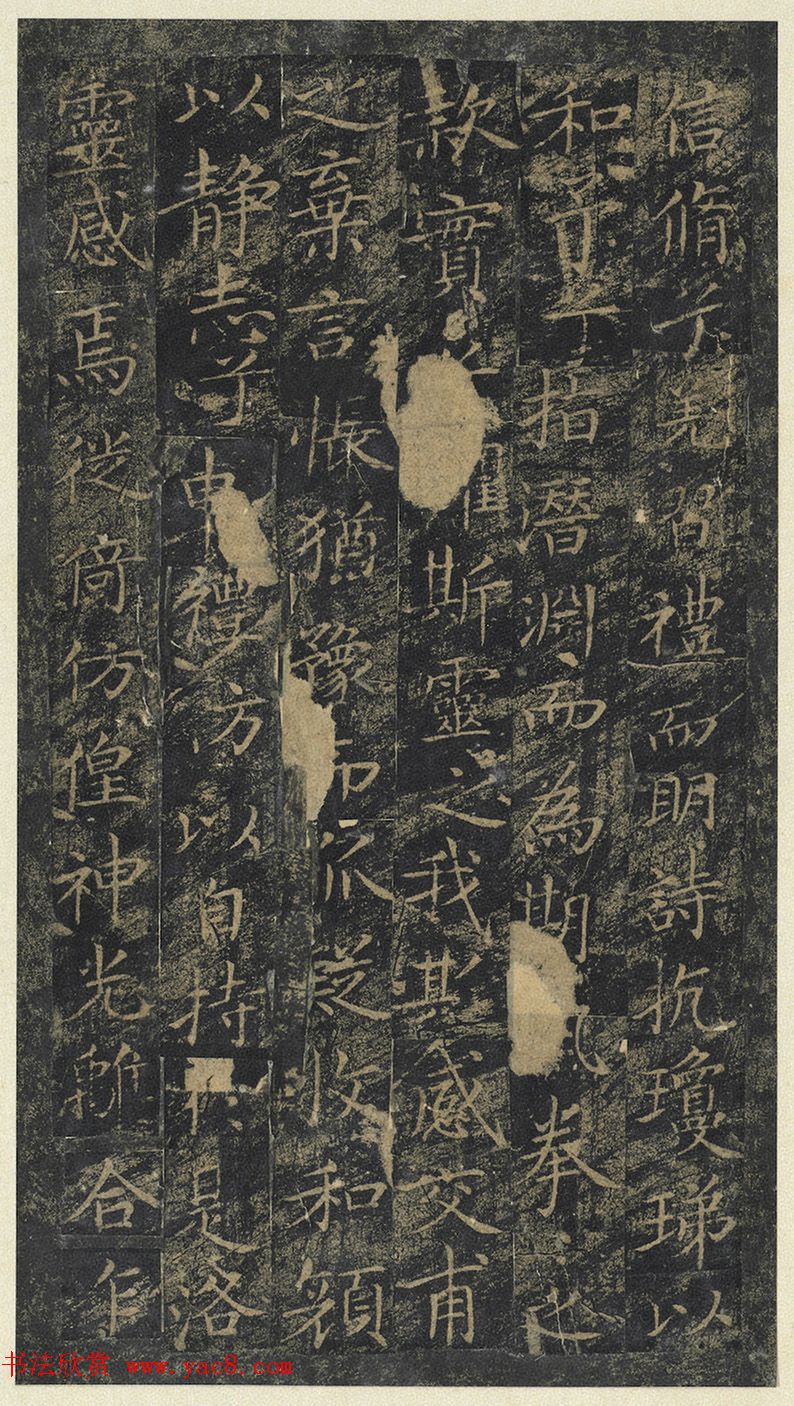 信脩兮羌習禮而明詩抗瓊珶以
和予兮指潛淵而為期拳〻之
款實兮懼斯靈之我其感交甫
之棄言悵猶豫而狐疑收和顏
以静志兮申禮防以自持於是洛
靈感焉徙倚仿偟神光離合乍
书法欣赏 www.yac8.com